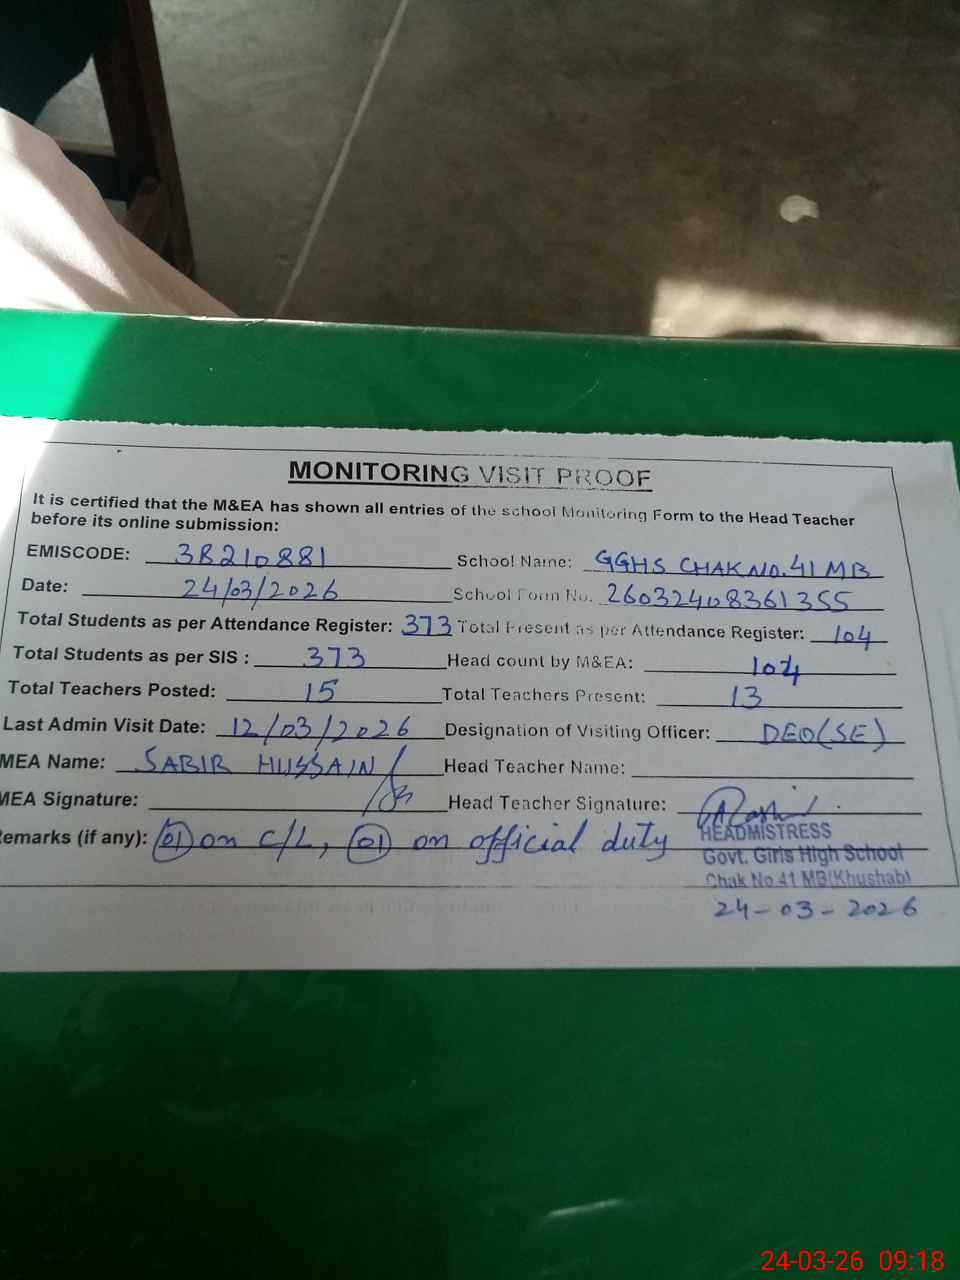 MONITORING VISIT PROOF
It is certified that the M&EA has shown all entries of the school Monitoring Form to the Head Teacher
before its online submission:
EMISCODE: 38210881 School Name: GGHS CHAK NO. 41 MB
Date: 24/03/2026 School Form No. 26032408361355
Total Students as per Attendance Register: 373 Total Present as per Attendance Register: 104
Total Students as per SIS : 373 Head count by M&EA: 104
Total Teachers Posted: 15 Total Teachers Present: 13
Last Admin Visit Date: 12/03/2026 Designation of Visiting Officer: DEO(SE)
MEA Name: SABIR HUSSAIN Head Teacher Name:
MEA Signature: Head Teacher Signature:
emarks (if any): 01 on C/L, 01 on official duty
HEADMISTRESS
Govt. Girls High School
Chak No.41 MB(Khushab)
24-03-2026
24-03-26 09:18